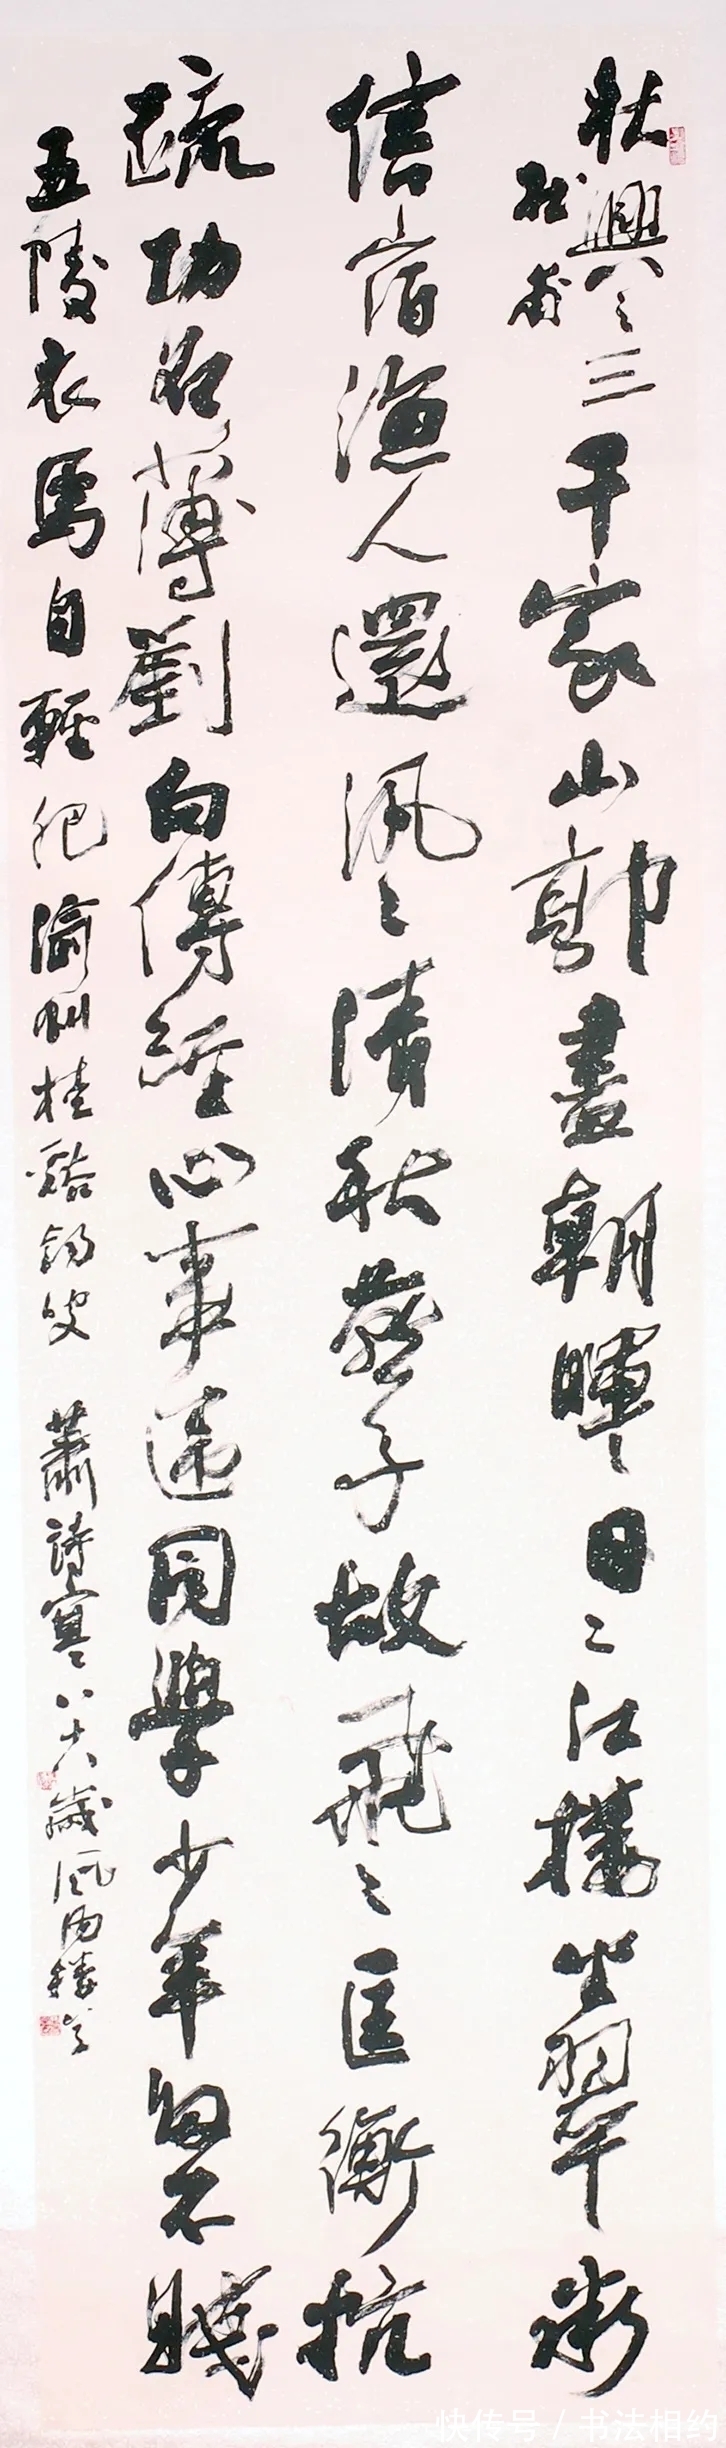 秋興之三千家山郭盡朝暉日々江樓坐翠微
杜甫
信宿漁人還汎々清秋燕子故飛々匡衡抗
疏功名薄劉向傳經心事違同學少年多不賤
五陵衣馬自輕肥渝州桂谿叟 蕭詩寒八十八歲風雨樓
快传号 / 书法相约